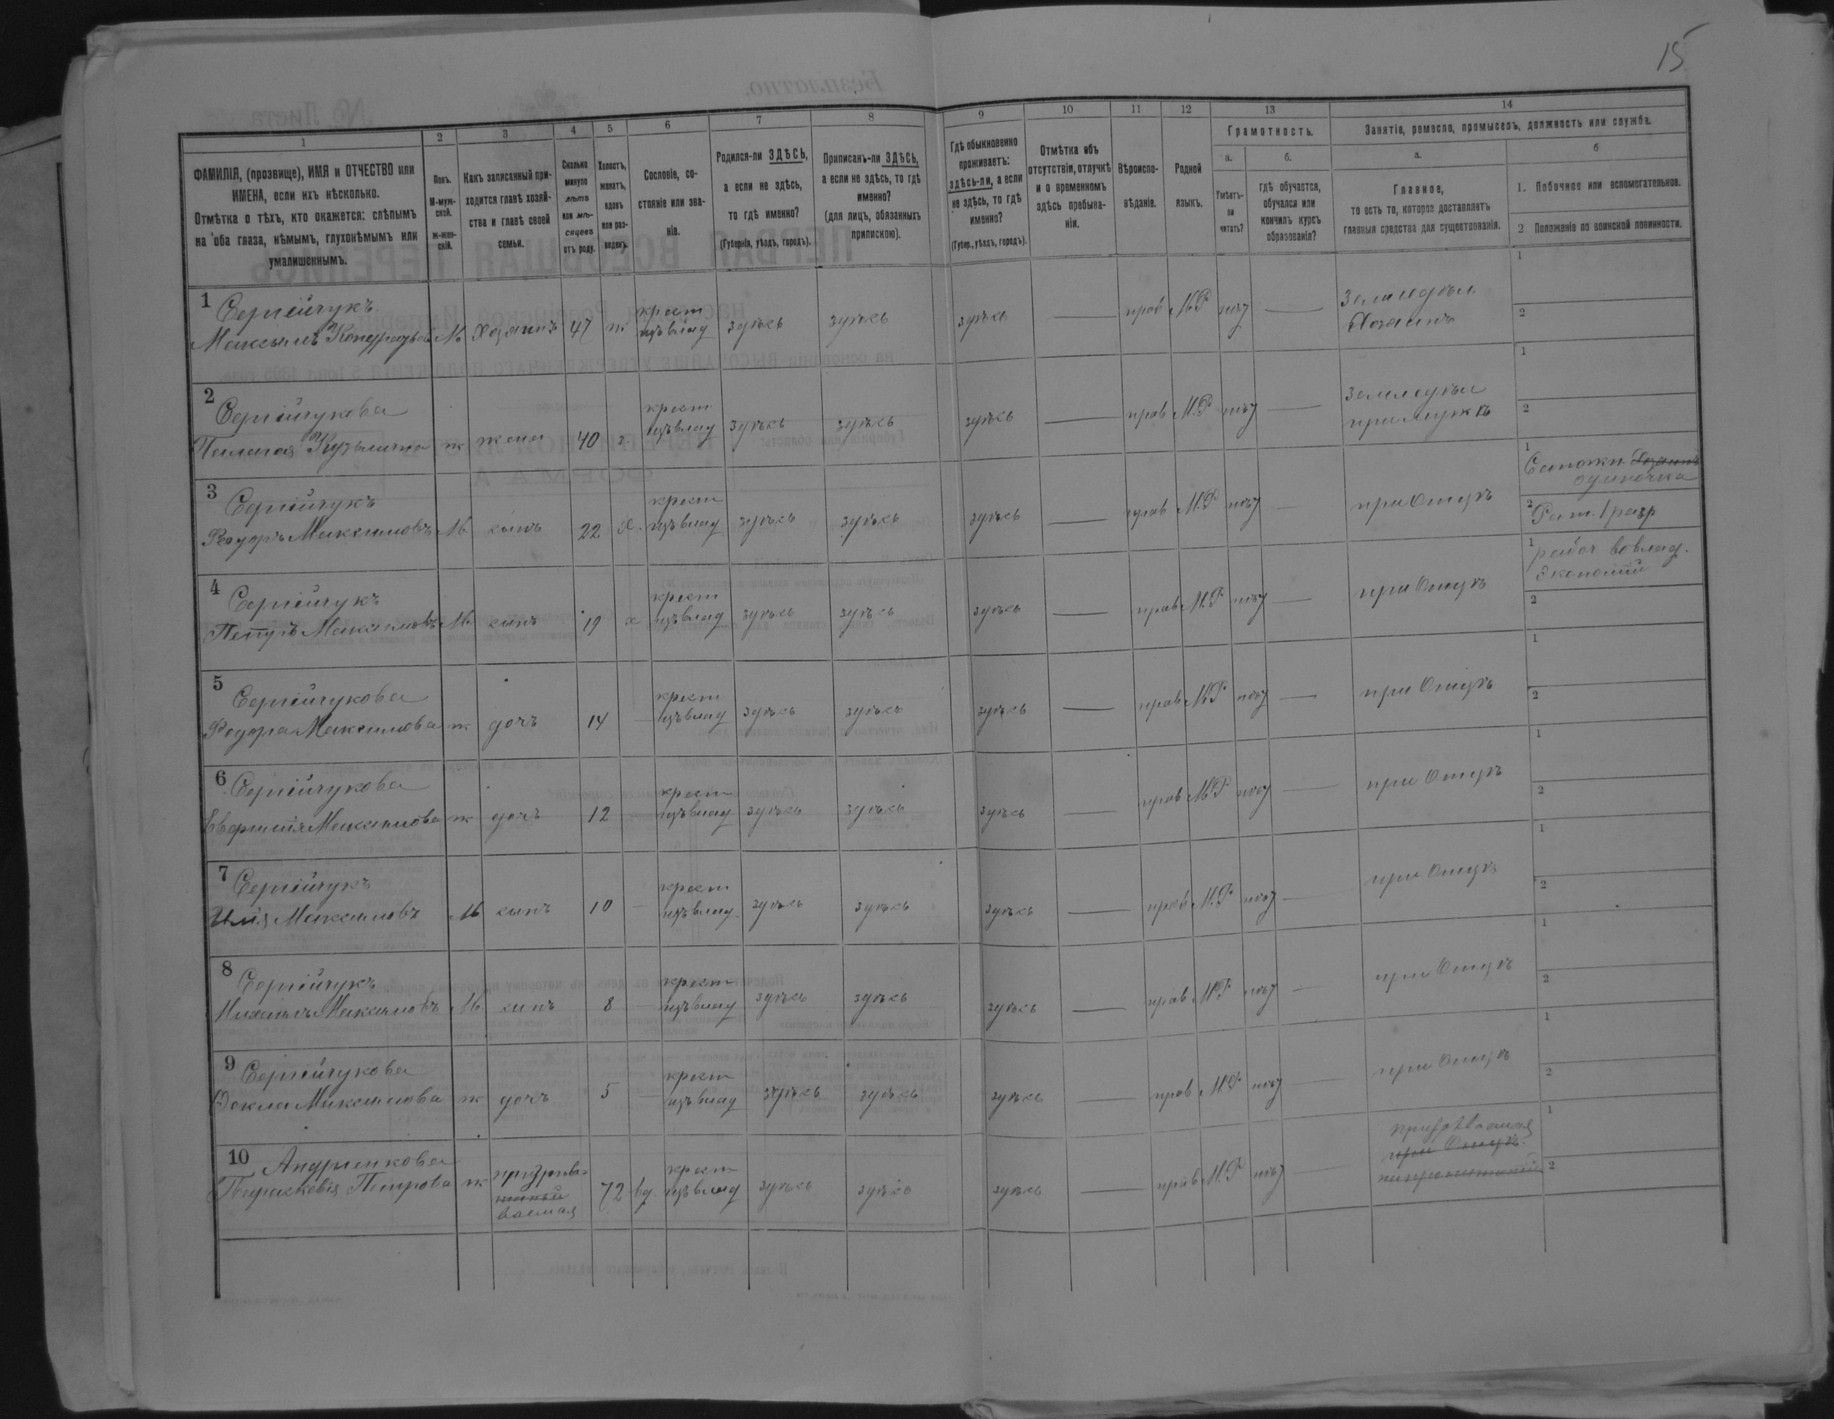 15
1
2
3
4
5
6
7
8
9
10
11
12
13
14
ФАМИЛІЯ, (прозвище), ИМЯ и ОТЧЕСТВО или
ИМЕНА, если ихъ нѣсколько.
Отмѣтка о тѣхъ, кто окажется: слѣпымъ
на оба глаза, нѣмымъ, глухонѣмымъ или
умалишеннымъ.
Полъ.
М-муж-
ской.
ж-жен-
скій.
Какъ записанный при-
ходится главѣ хозяй-
ства и главѣ своей
семьи.
Сколько
минуло
лѣтъ
или мѣ-
сяцевъ
отъ роду.
Холостъ,
женатъ,
вдовъ
или раз-
веденъ.
Сословіе, со-
стояніе или зва-
ніе.
Родился-ли ЗДѢСЬ,
а если не здѣсь,
то гдѣ именно?
(Губернія, уѣздъ, городъ).
Приписанъ-ли ЗДѢСЬ,
а если не здѣсь, то гдѣ
именно?
(для лицъ, обязанныхъ
припискою).
Гдѣ обыкновенно
проживаетъ:
здѣсь-ли, а если
не здѣсь, то гдѣ
именно?
(Губер., уѣздъ, городъ).
Отмѣтка объ
отсутствіи, отлучкѣ
и о временномъ
здѣсь пребыва-
ніи.
Вѣроиспо-
вѣданіе.
Родной
языкъ.
Грамотность.
а.
Умѣетъ-
ли
читать?
б.
гдѣ обучается,
обучался или
кончилъ курсъ
образованія?
Занятіе, ремесло, промыселъ, должность или служба.
а.
Главное,
то есть то, которое доставляетъ
главныя средства для существованія.
б
1. Побочное или вспомогательное.
2. Положеніе по воинской повинности.
1 Сергійчукъ
Максымъ Кондратьев М. Хозяинъ 47 ж крест изъ влад здѣсь здѣсь здѣсь — прав М.Р нѣт — Земледѣл Хозяинъ
2 Сергійчукова
Пелагея Кузьмична ж жена 40 з. крест изъ влад здѣсь здѣсь здѣсь — прав М.Р нѣт — Земледѣл при мужѣ
3 Сергійчукъ
Федоръ Максимовъ М. сынъ 22 х. крест изъ влад здѣсь здѣсь здѣсь — прав М.Р нѣт — при Отцѣ
Сапожн Хозяинъ
одиночка
Рат. 1 разр
4 Сергійчукъ
Петръ Максимовъ М. сынъ 19 х крест изъ влад здѣсь здѣсь здѣсь — прав М.Р нѣт — при Отцѣ
работ в влад.
Экономіи
5 Сергійчукова
Федора Максимова ж дочъ 14 — крест изъ влад здѣсь здѣсь здѣсь — прав М.Р нѣт — при Отцѣ
6 Сергійчукова
Максимова ж дочъ 12 — крест изъ влад здѣсь здѣсь здѣсь — прав М.Р нѣт — при Отцѣ
7 Сергійчукъ
Илія Максимовъ М. сынъ 10 — крест изъ влад. здѣсь здѣсь здѣсь — прав М.Р нѣт — при Отцѣ
8 Сергійчукъ
Максимовъ М. сынъ 8 — крест изъ влад здѣсь здѣсь здѣсь — прав М.Р нѣт — при Отцѣ
9 Сергійчукова
Максимова ж дочъ 5 — крест изъ влад здѣсь здѣсь здѣсь — прав М.Р нѣт — при Отцѣ
10 Андріенкова
Параскевія Петрова ж 72 вд. крест изъ влад здѣсь здѣсь здѣсь — прав М.Р нѣт — при Отцѣ